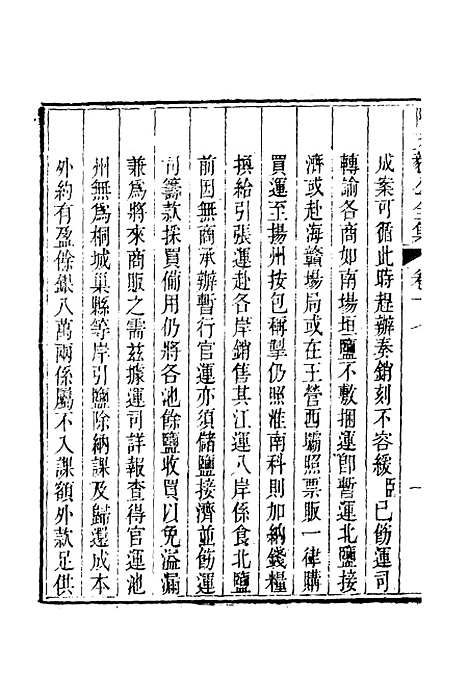 成案可循此時趕辦奏銷刻不容緩臣已飭運司
轉諭各商如南場垣鹽不敷捆運卽暫運北鹽接
濟或赴海贛場局或在王營西壩照票販一律購
買運至揚州按包稱掣仍照淮南科則加納錢糧
撰給引張運赴各岸銷售其江運八岸係食北鹽
前因無商承辦暫行官運亦須儲鹽接濟並飭運
司籌款採買備用仍將各池餘鹽收買以免溢漏
兼爲將來商販之需茲據運司詳報查得官運池
州無爲桐城巢縣等岸引鹽除納課及歸還成本
外約有盈餘銀八萬兩係屬不入課額外款足供
全集
卷十七
一